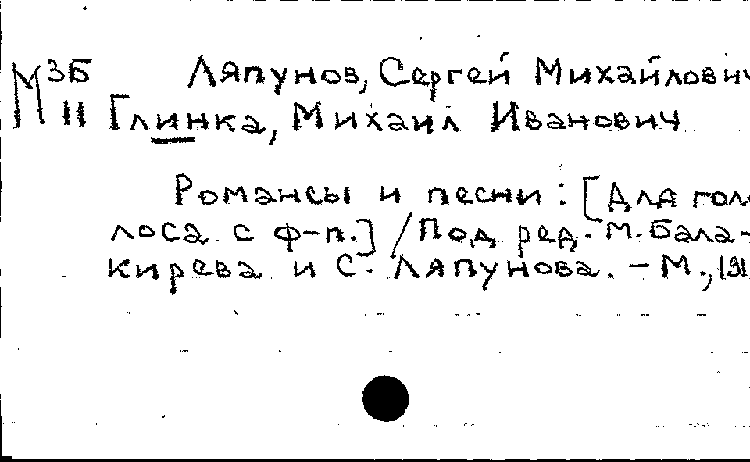 М 3Б Ляпунов, Сергей Михайлович
11 Глинка, Михаил Иванович
Романсы и песни : [Для гол
лоса с ф-п.] / Под ред. М. Бала-
кирева и С. Ляпунова. - М.,